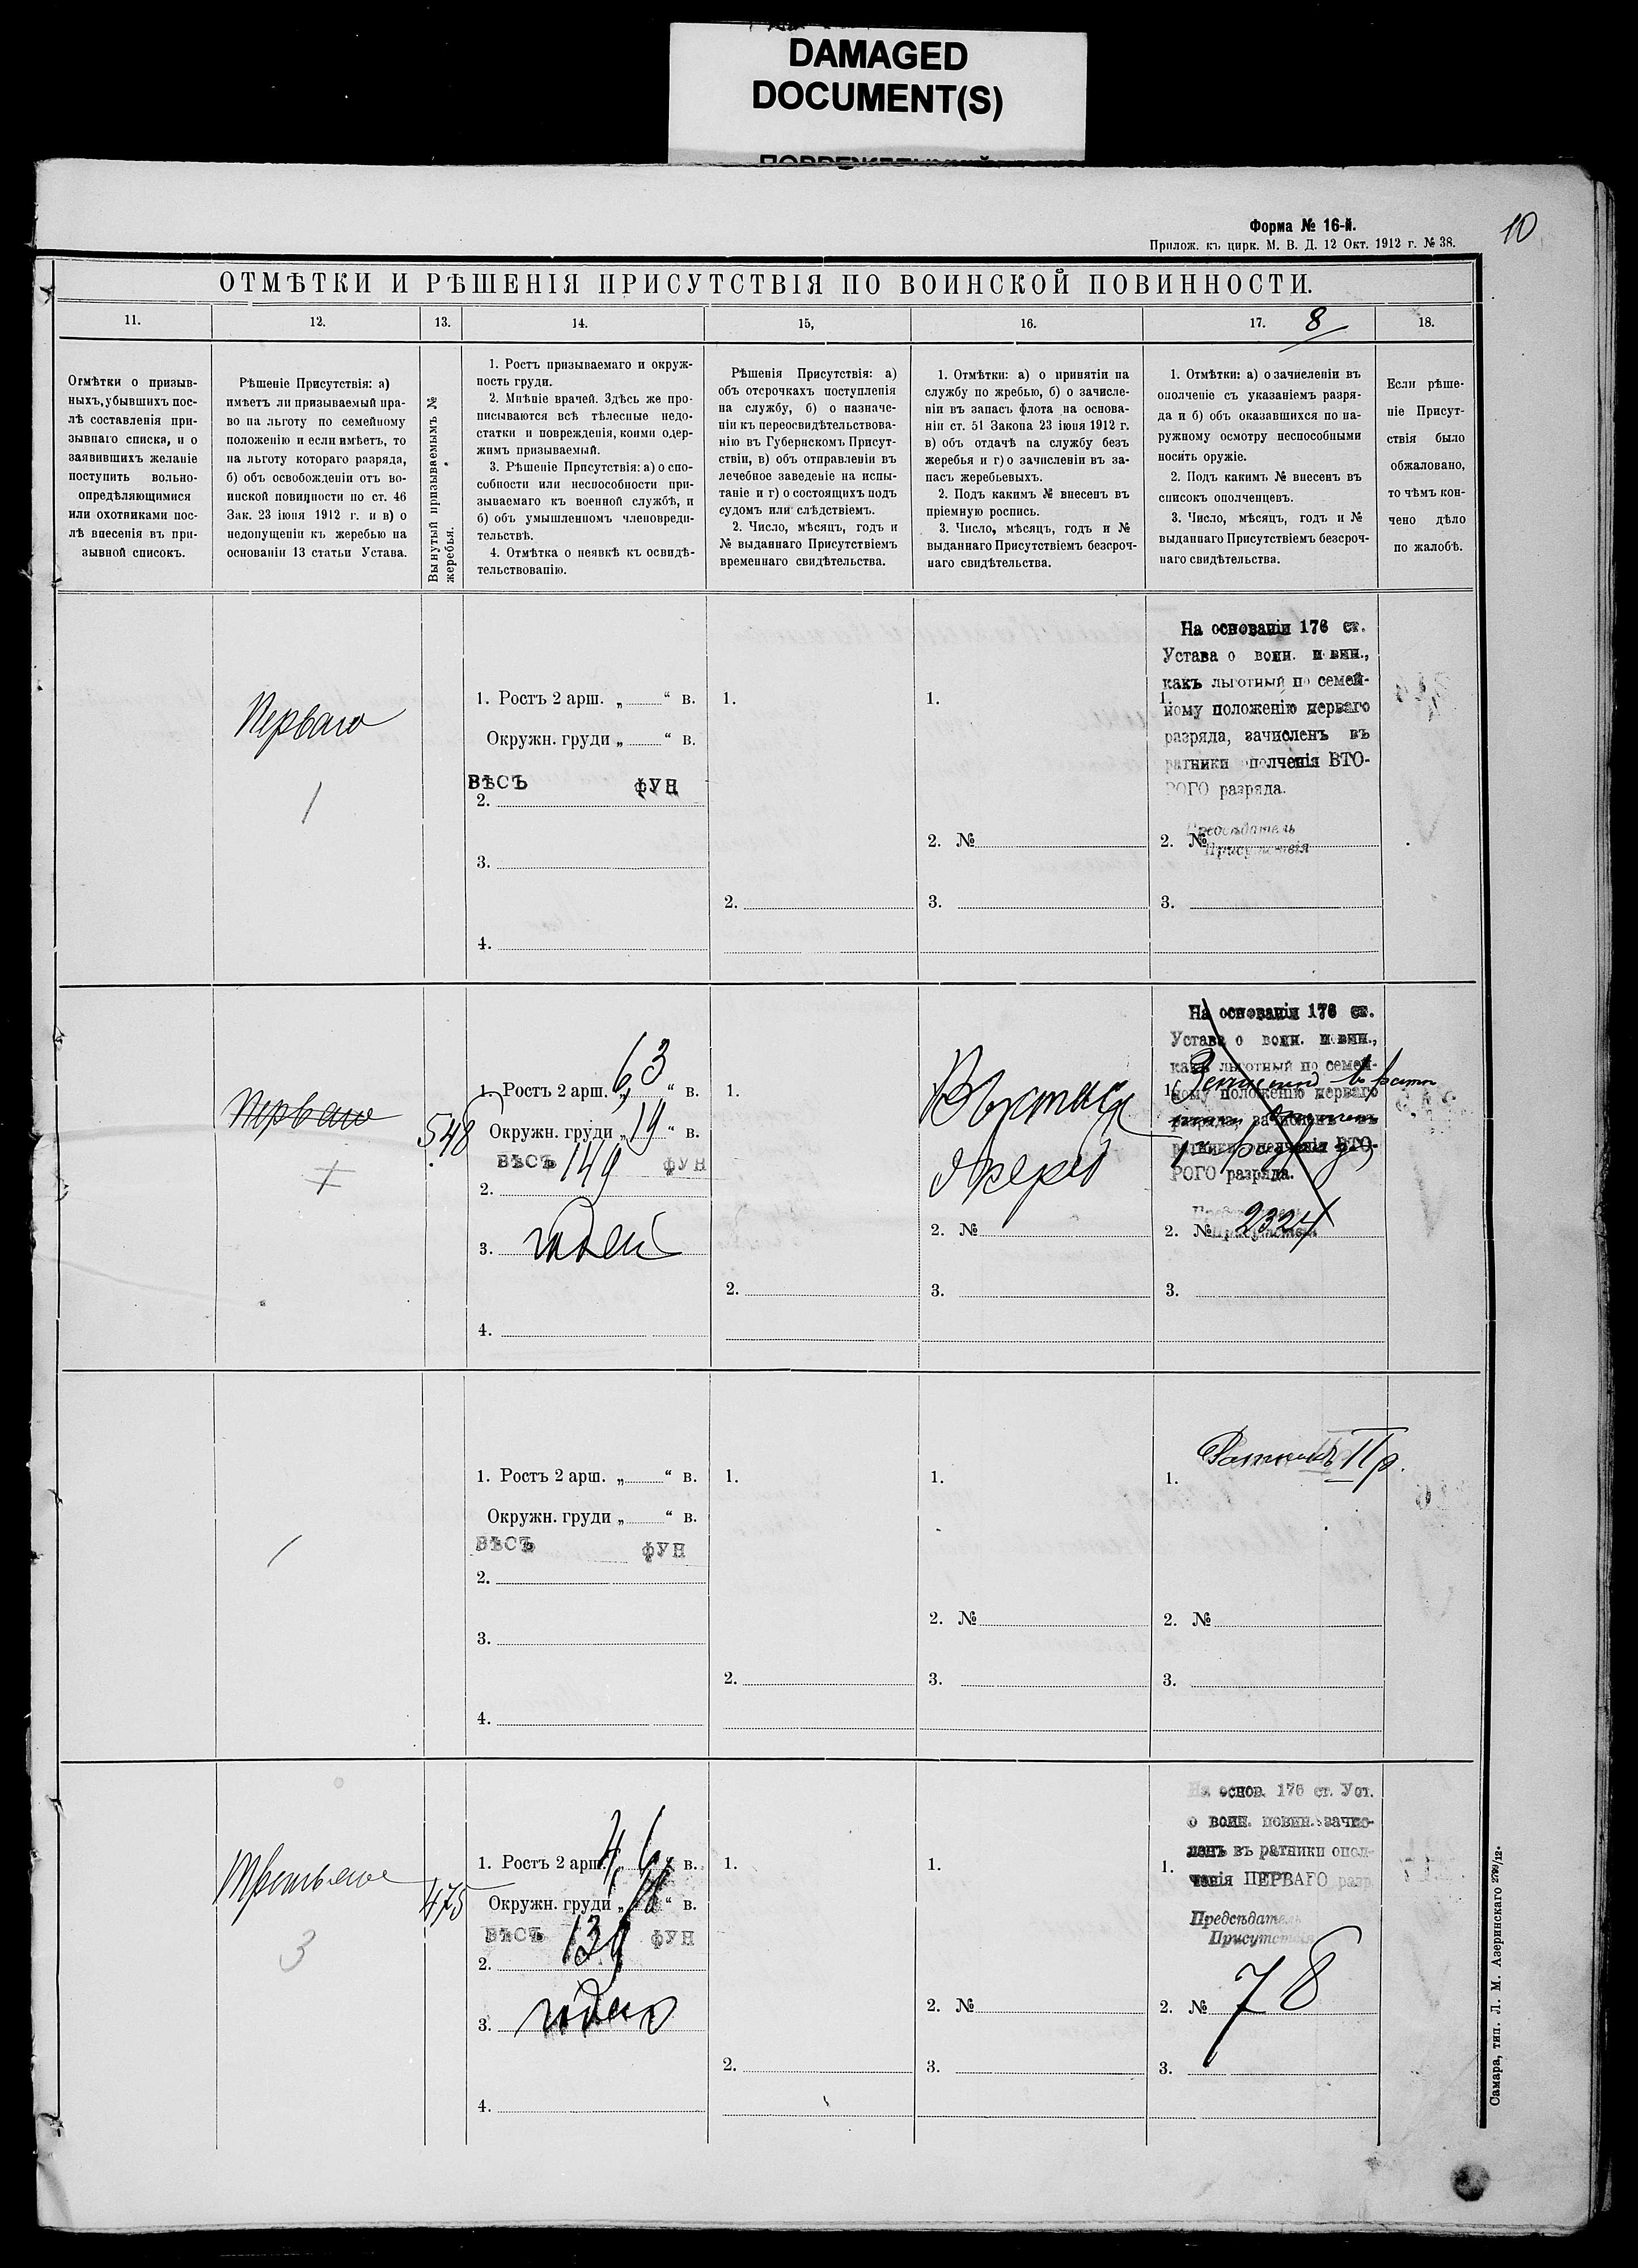 DAMAGED
DOCUMENT(S)
Форма № 16-й.
Прилож. къ цирк. М. В. Д. 12 Окт. 1912 г. № 38.
10
ОТМѢТКИ И РѢШЕНІЯ ПРИСУТСТВІЯ ПО ВОИНСКОЙ ПОВИННОСТИ.
11.
12.
13.
14.
15,
16.
17. 8
18.
Отмѣтки о призыв-
ныхъ, убывшихъ пос-
лѣ составленія при-
зывнаго списка, и о
заявившихъ желаніе
поступить вольно-
опредѣляющимися
или охотниками пос-
лѣ внесенія въ при-
зывной списокъ.
Рѣшеніе Присутствія: а)
имѣетъ ли призываемый пра-
во на льготу по семейному
положенію и если имѣетъ, то
на льготу котораго разряда,
б) объ освобожденіи отъ во-
инской повинности по ст. 46
Зак. 23 іюня 1912 г. и в) о
недопущеніи къ жеребью на
основаніи 13 статьи Устава.
Вынутый призываемымъ №
жеребья.
1. Ростъ призываемаго и окруж-
ность груди.
2. Мнѣніе врачей. Здѣсь же про-
писываются всѣ тѣлесные недо-
статки и поврежденія, коими одер-
жимъ призываемый.
3. Рѣшеніе Присутствія: а) о спо-
собности или неспособности при-
зываемаго къ военной службѣ, и
б) объ умышленномъ членовреди-
тельствѣ.
4. Отмѣтка о неявкѣ къ освидѣ-
тельствованію.
Рѣшенія Присутствія: а)
объ отсрочкахъ поступленія
на службу, б) о назначе-
ніи къ переосвидѣтельствова-
нію въ Губернскомъ Присут-
ствіи, в) объ отправленіи въ
лечебное заведеніе на испы-
таніе и г) о состоящихъ подъ
судомъ или слѣдствіемъ.
2. Число, мѣсяцъ, годъ и
№ выданнаго Присутствіемъ
временнаго свидѣтельства.
1. Отмѣтки: а) о принятіи на
службу по жребью, б) о зачисле-
ніи въ запасъ флота на основа-
ніи ст. 51 Закона 23 іюня 1912 г.
в) объ отдачѣ на службу безъ
жеребья и г) о зачисленіи въ за-
пасъ жеребьевыхъ.
2. Подъ какимъ № внесенъ въ
пріемную роспись.
3. Число, мѣсяцъ, годъ и №
выданнаго Присутствіемъ безсроч-
наго свидѣтельства.
1. Отмѣтки: а) о зачисленіи въ
ополченіе съ указаніемъ разря-
да и б) объ оказавшихся по на-
ружному осмотру неспособными
носить оружіе.
2. Подъ какимъ № внесенъ въ
списокъ ополченцевъ.
3. Число, мѣсяцъ, годъ и №
выданнаго Присутствіемъ безсроч-
наго свидѣтельства.
Если рѣше-
ніе Присут-
ствія было
обжаловано,
то чѣмъ кон-
чено дѣло
по жалобѣ.
Перваго
1
1. Ростъ 2 арш. „ “ в.
Окружн. груди „ “ в.
ВѢСЪ ФУН
2.
3.
4.
1.
2.
1.
2. №
3.
На основаніи 176 ст.
Устава о воин. повин.,
какъ льготный по семей-
1. ному положенію перваго
разряда, зачисленъ въ
ратники ополченія ВТО-
РОГО разряда.
Предсѣдатель
2. № Присутствія
3.
Перваго
548
1. Ростъ 2 арш. „ 6 3 “ в.
Окружн. груди „ 19 “ в.
ВѢСЪ 149 ФУН
2.
3. годенъ
4.
1.
2.
жереб
2. №
3.
На основаніи 176 ст.
Устава о воин. повин.,
какъ льготный по семей-
1. ному положенію перваго
разряда, зачисленъ въ
ратники ополченія ВТО-
РОГО разряда.
2. № 2324
3.
1. Ростъ 2 арш. „ “ в.
Окружн. груди „ “ в.
ВѢСЪ ФУН
2.
3.
4.
1.
2.
1.
2. №
3.
Ратникъ II р.
1.
2. №
3.
Третьяго
3
475
1. Ростъ 2 арш. „ 4 6 “ в.
Окружн. груди „ “ в.
ВѢСЪ 139 ФУН
2.
3. годенъ
4.
1.
2.
1.
2. №
3.
На основ. 176 ст. Уст.
о воин. повин. зачис-
ленъ въ ратники опол-
1. ченія ПЕРВАГО разр.
Предсѣдатель
Присутствія
2. № 78
3.
Самара, тип. Л. М. Азеринскаго